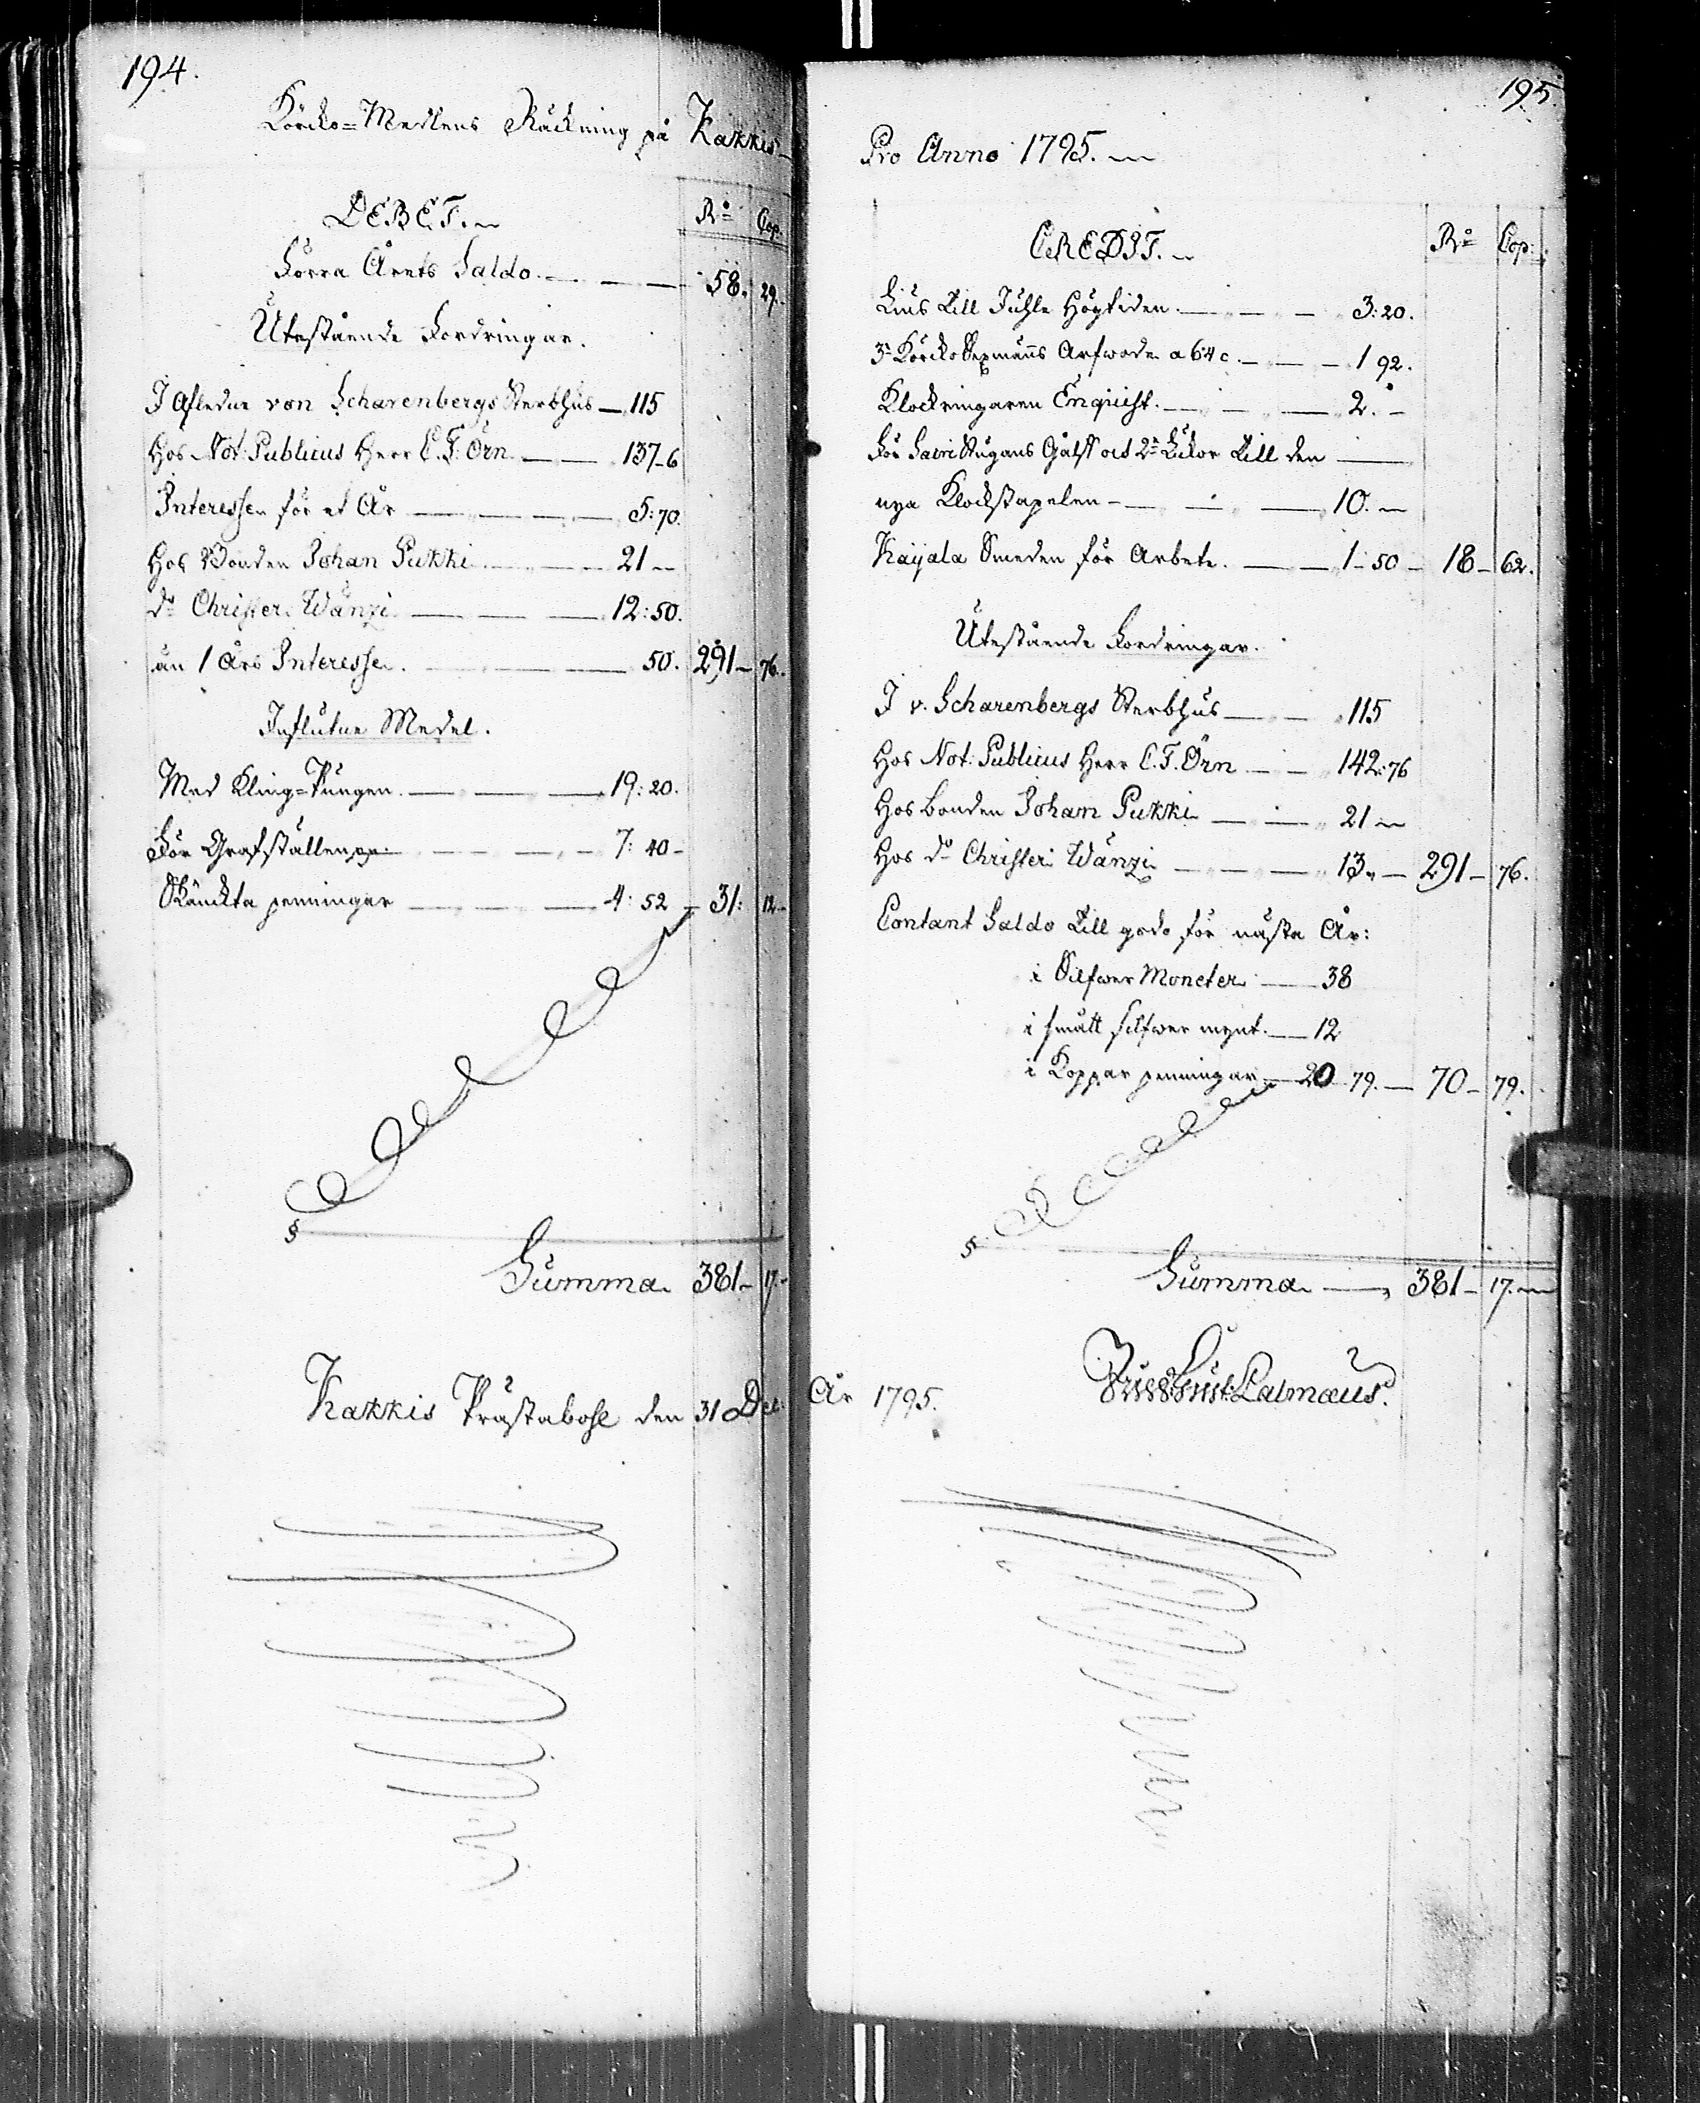 194.
Körcko=Medlens Räckning på Kakkis
DEBET.
Ro Cop.
Förra Årets Saldo. 58. 29.
Utestående Fordringar.
I Afledne von Scharenbergs Sterbhus 115
Hos Not: Publicus Herr C. F. Örn 137-6
Interesse för et År 5:70.
Hos Bonden Johan Pukki 21
do Christer Wänzi 12:50.
än 1 års Interesse. 50. 291 76.
Influtne Medel.
Med Kling=Pungen. 19:20.
För Grafställen 7:40
Skänckta penningar 4:52 31: 12
§
Summa 381 17.
Kakkis Prästabohl den 31 Dec:
195.
Pro Anno 1795.
CREDIT.
Ro Cop:
Lius till Juhle Högtiden 3:20.
3ne Körcko Sexmäns Arfwode a 64 c. 1 92.
Klockringaren Enquist. 2.
För Stugans till den
nya Klockstapelen 10.
Kayala Smeden för Arbete. 1-50 18 62.
Utestående Fordringar.
I v. Scharenbergs Sterbhus 115
Hos Not: Publicus Herr C. F. Örn 142:76
Hos Bonden Johan Pukki 21
Hos do Christer Wänzi 13 291 76.
Contant Saldo till godo för nästa År:
i Silfwer Moneter 38
i smått silfwer mynt. 12
i Koppar penningar 20 79. 70 79.
§
Summa 381 17.
År 1795.